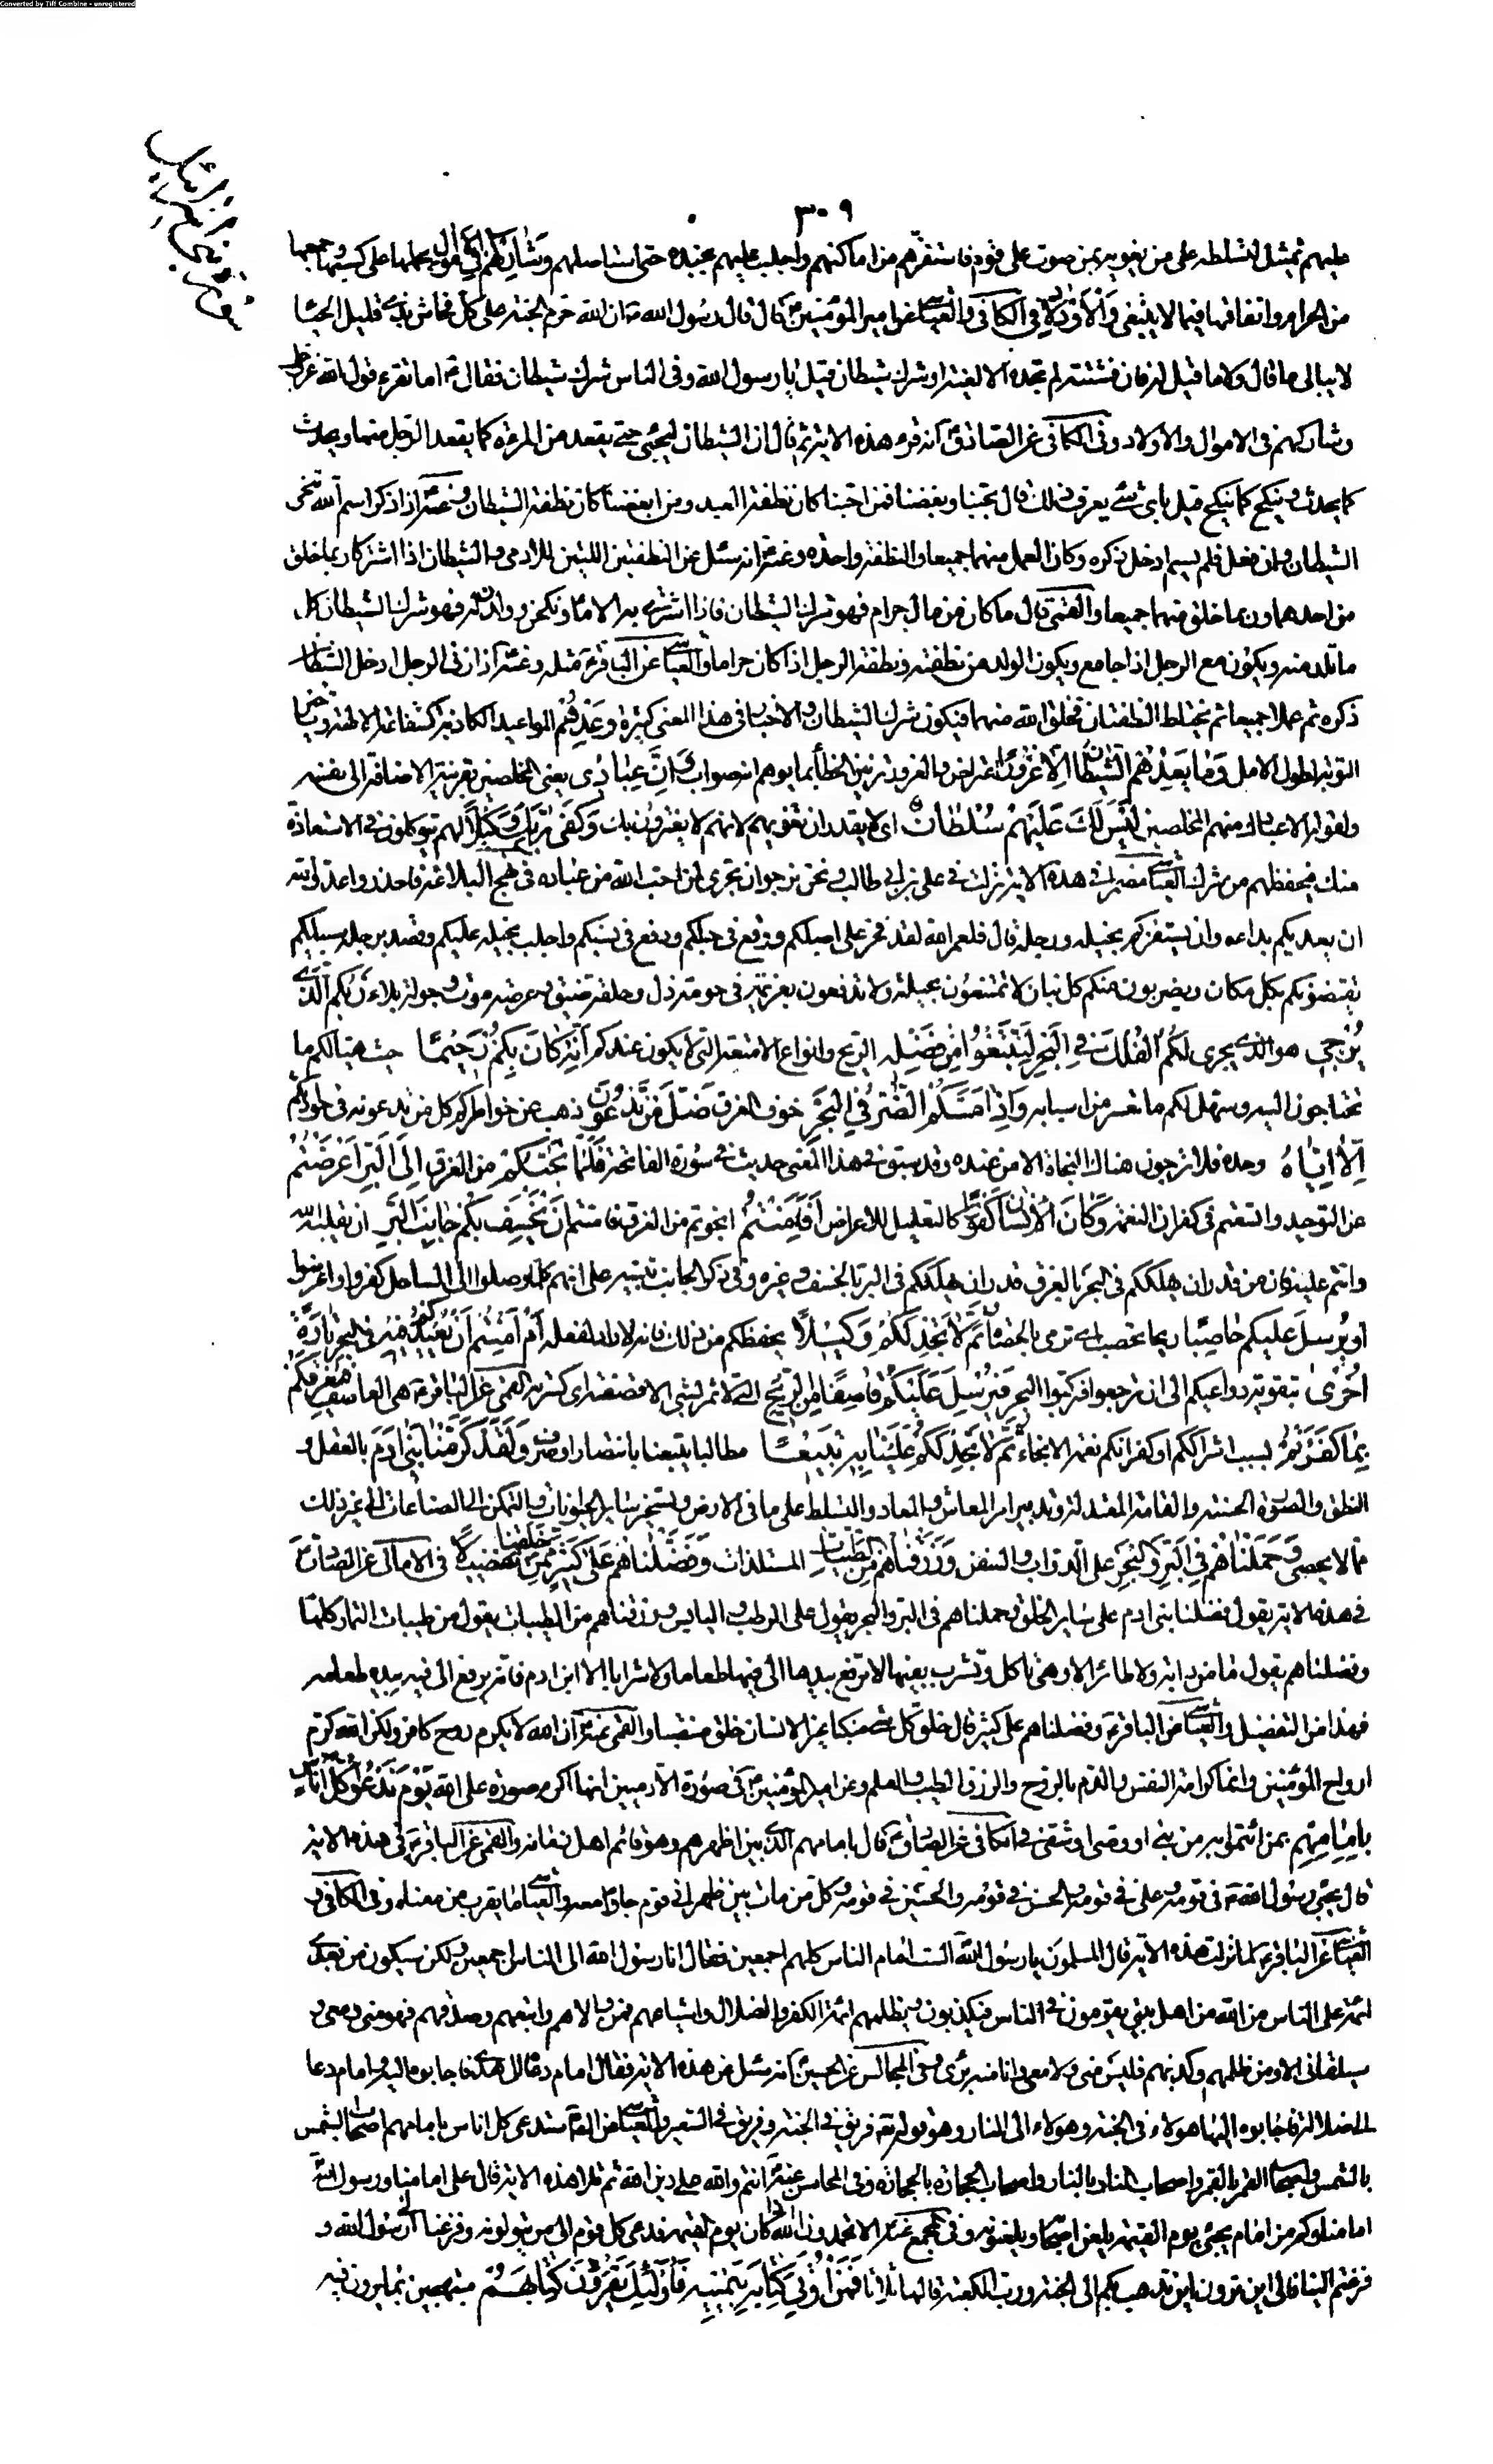 Converted by Tiff Combine - unregistered
سورة بنی اسرائیل
۳۰۹
عليهم تمثيل لتسلطه على من يغويه بمن صوت على قوم فاستفزهم من اماكنهم واجلب عليهم بجنده حتى استأصلهم وَشَارِكْهُمْ فِي الْأَمْوَالِ بحملها على كسبها وجمعها
من الحرام وانفاقها فيما لا ينبغى وَالْأَوْلَادِ فى الكافى والعياشى عن امير المؤمنين ع قال قال رسول الله ص ان الله حرم الجنة على كل فحاش بذى قليل الحيا
لا يبالى ما قال ولا ما قيل له فان فتشته لم تجده الا لغية او شرك شيطان قيل يا رسول الله وفى الناس شرك شيطان فقال ص اما تقرء قول الله عز وجل
وشاركهم فى الاموال والاولاد وفى الكافى عن الصادق ع انه قرء هذه الاية ثم قال ان الشيطان ليجيئ حتى يقعد من المرءة كما يقعد الرجل منها ويحدث
كما يحدث وينكح كما ينكح قيل باى شىء يعرف ذلك قال بحبنا وبغضنا فمن احبنا كان نطفة العبد ومن ابغضنا كان نطفة الشيطان وعنه ع اذا ذكر اسم الله تنحى
الشيطان وان فعل فلم يسم ادخل ذكره وكان العمل منهما جميعا والنطفة واحدة وعنه ع انه سئل عن النطفتين اللتين للادمى والشيطان اذا اشتركا ربما خلق
من احدهما وربما خلق منهما جميعا والقمى قال ما كان من مال حرام فهو شرك الشيطان فاذا اشترى به الاماء ونكحهن وولد له فهو شرك الشيطان كل
ما تلد منه ويكون مع الرجل اذا جامع ويكون الولد من نطفته ونطفة الرجل اذا كان حراما والعياشى عن الباقر ع مثله وعنه ع اذا زنى الرجل ادخل الشيطان
ذكره ثم عملا جميعا ثم تختلط النطفتان فيخلق الله منهما فيكون شرك الشيطان والاخبار فى هذا المعنى كثيرة وَعِدْهُمْ المواعيد الكاذبة كشفاعة الالهة وتاخير
التوبة لطول الامل وَمَا يَعِدُهُمُ الشَّيْطَانُ إِلَّا غُرُورًا اعتراض والغرور تزيين الخطأ بما يوهم انه صواب إِنَّ عِبَادِي يعنى المخلصين بقرينة الاضافة الى نفسه
ولقوله الا عبادك منهم المخلصين لَيْسَ لَكَ عَلَيْهِمْ سُلْطَانٌ اى لا يقدر ان تغويهم لانهم لا يغترون بك وَكَفَى بِرَبِّكَ وَكِيلًا لهم يتوكلون فى الاستعاذة
منك فيحفظهم من شرك العياشى مضمرا فى هذه الاية نزلت فى على بن ابى طالب ونحن نرجو ان تجرى لمن احب الله من عباده فى نهج البلاغة فاحذروا عدو الله
ان يعديكم بدائه وان يستفزكم بخيله ورجله قال فلعمر الله لقد فخر على اصلكم ووقع فى حسبكم ودفع فى نسبكم واجلب بخيله عليكم وقصد برجله سبيلكم
يقتنصونكم بكل مكان ويضربون منكم كل بنان لا تمتنعون بحيلة ولا تدفعون بعزيمة فى حومة ذل وحلقة ضيق وعرصة موت وجولة بلاء رَبُّكُمُ الَّذِي
يُزْجِي هو الذى يجرى لَكُمُ الْفُلْكَ فِي الْبَحْرِ لِتَبْتَغُوا مِنْ فَضْلِهِ الربح وانواع الامتعة التى لا يكون عندكم إِنَّهُ كَانَ بِكُمْ رَحِيمًا حيث هيأ لكم ما
تحتاجون اليه وسهل لكم ما تعسر من اسبابه وَإِذَا مَسَّكُمُ الضُّرُّ فِي الْبَحْرِ خوف الغرق ضَلَّ مَنْ تَدْعُونَ ذهب عن خواطركم كل من تدعونه فى حوادثكم
إِلَّا إِيَّاهُ وحده فلا ترجون هناك النجاة الا من عنده وقد سبق فى هذا المعنى حديث فى سورة الفاتحة فَلَمَّا نَجَّاكُمْ من الغرق إِلَى الْبَرِّ أَعْرَضْتُمْ
عن التوحيد واتسعتم فى كفران النعمة وَكَانَ الْإِنْسَانُ كَفُورًا كالتعليل للاعراض أَفَأَمِنْتُمْ انجوتم من الغرق فامنتم أَنْ يَخْسِفَ بِكُمْ جَانِبَ الْبَرِّ ان يقلبه الله
وانتم عليه فان من قدر ان يهلككم فى البحر بالغرق قدر ان يهلككم فى البر بالخسف وغيره وفى ذكر الجانب تنبيه على انهم كلما وصلوا الى الساحل كفروا واعرضوا
أَوْ يُرْسِلَ عَلَيْكُمْ حَاصِبًا ريحا تحصب اى ترمى بالحصباء ثُمَّ لَا تَجِدُوا لَكُمْ وَكِيلًا يحفظكم من ذلك فانه لا راد لفعله أَمْ أَمِنْتُمْ أَنْ يُعِيدَكُمْ فِيهِ فى البحر تَارَةً
أُخْرَى بتقوية دواعيكم الى ان ترجعوا فتركبوا البحر فَيُرْسِلَ عَلَيْكُمْ قَاصِفًا مِنَ الرِّيحِ التى لا تمر بشىء الا قصفته اى كسرته القمى عن الباقر ع هى العاصف فَيُغْرِقَكُمْ
بِمَا كَفَرْتُمْ بسبب اشراككم او كفرانكم نعمة الانجاء ثُمَّ لَا تَجِدُوا لَكُمْ عَلَيْنَا بِهِ تَبِيعًا مطالبا يتبعنا بانتصار او صرف وَلَقَدْ كَرَّمْنَا بَنِي آدَمَ بالعقل و
النطق والصورة الحسنة والقامة المعتدلة وتدبير امر المعاش والمعاد والتسلط على ما فى الارض وتسخير ساير الحيوانات والتمكن الى الصناعات الى غير ذلك
مما لا يحصى وَحَمَلْنَاهُمْ فِي الْبَرِّ وَالْبَحْرِ على الدواب والسفن وَرَزَقْنَاهُمْ مِنَ الطَّيِّبَاتِ المستلذات وَفَضَّلْنَاهُمْ عَلَى كَثِيرٍ مِمَّنْ خَلَقْنَا تَفْضِيلًا فى الامالى عن الصادق ع
فى هذه الاية يقول فضلنا بنى ادم على ساير الخلق وحملناهم فى البر والبحر يقول على الرطب واليابس ورزقناهم من الطيبات يقول من طيبات الثمار كلها
وفضلناهم يقول ما من دابة ولا طائر الا وهى تاكل وتشرب بفيها لا ترفع بيدها الى فيها طعاما ولا شرابا الا ابن ادم فانه يرفع الى فيه بيده طعامه
فهذا من التفضيل والعياشى عن الباقر ع وفضلناهم على كثير قال خلق كل شىء منكبا غير الانسان خلق منتصبا والقمى عنه ع ان الله لا يكرم روح كافر ولكن الله كرم
ارواح المؤمنين وانما كرامة النفس والدم بالروح والرزق الطيب والعلم وعن امير المؤمنين ع فى صورة الآدميين انها اكرم صورة على الله يَوْمَ نَدْعُو كُلَّ أُنَاسٍ
بِإِمَامِهِمْ بمن ائتموا به من نبى او وصى او شقى فى الكافى عن الصادق ع قال بامامهم الذى بين اظهرهم وهو قائم اهل زمانه والقمى عن الباقر ع فى هذه الاية
قال يجيئ رسول الله ص فى قومه وعلى ع فى قومه والحسن فى قومه والحسين فى قومه وكل من مات بين ظهرانى قوم جاؤا معه والعياشى ما يقرب من معناه وفى الكافى و
العياشى عن الباقر ع لما نزلت هذه الاية قال المسلمون يا رسول الله الست امام الناس كلهم اجمعين فقال انا رسول الله الى الناس اجمعين ولكن سيكون من بعدى
ائمة على الناس من الله من اهل بيتى يقومون فى الناس فيكذبون ويظلمهم ائمة الكفر والضلال واشياعهم فمن والاهم واتبعهم وصدقهم فهو منى ومعى و
سيلقانى الا ومن ظلمهم وكذبهم فليس منى ولا معى وانا منه برئ وفى المجالس عن الحسين ع انه سئل عن هذه الاية فقال امام دعا الى هدى فاجابوه اليه وامام دعا
الى ضلالة فاجابوه اليها هؤلاء فى الجنة وهؤلاء الى النار وهو قوله تعالى فريق فى الجنة وفريق فى السعير والعياشى عن الصادق ع سيدعى كل اناس بامامهم اصحاب الشمس
بالشمس واصحاب القمر بالقمر واصحاب النار بالنار واصحاب الحجارة بالحجارة وفى المحاسن عنه ع انتم والله على دين الله ثم تلا هذه الاية ثم قال على امامنا ورسول الله
امامنا وكم من امام يجيئ يوم القيمة يلعن اصحابه ويلعنونه وفى المجمع عنه ع الا تحمدون الله اذا كان يوم القيمة فدعى كل قوم الى من يتولونه وفزعنا الى رسول الله و
فزعتم الينا فالى اين ترون اين تذهب بكم الى الجنة ورب الكعبة قالها ثلثا فَمَنْ أُوتِيَ كِتَابَهُ بِيَمِينِهِ فَأُولَئِكَ يَقْرَءُونَ كِتَابَهُمْ مبتهجين بما يرون فيه